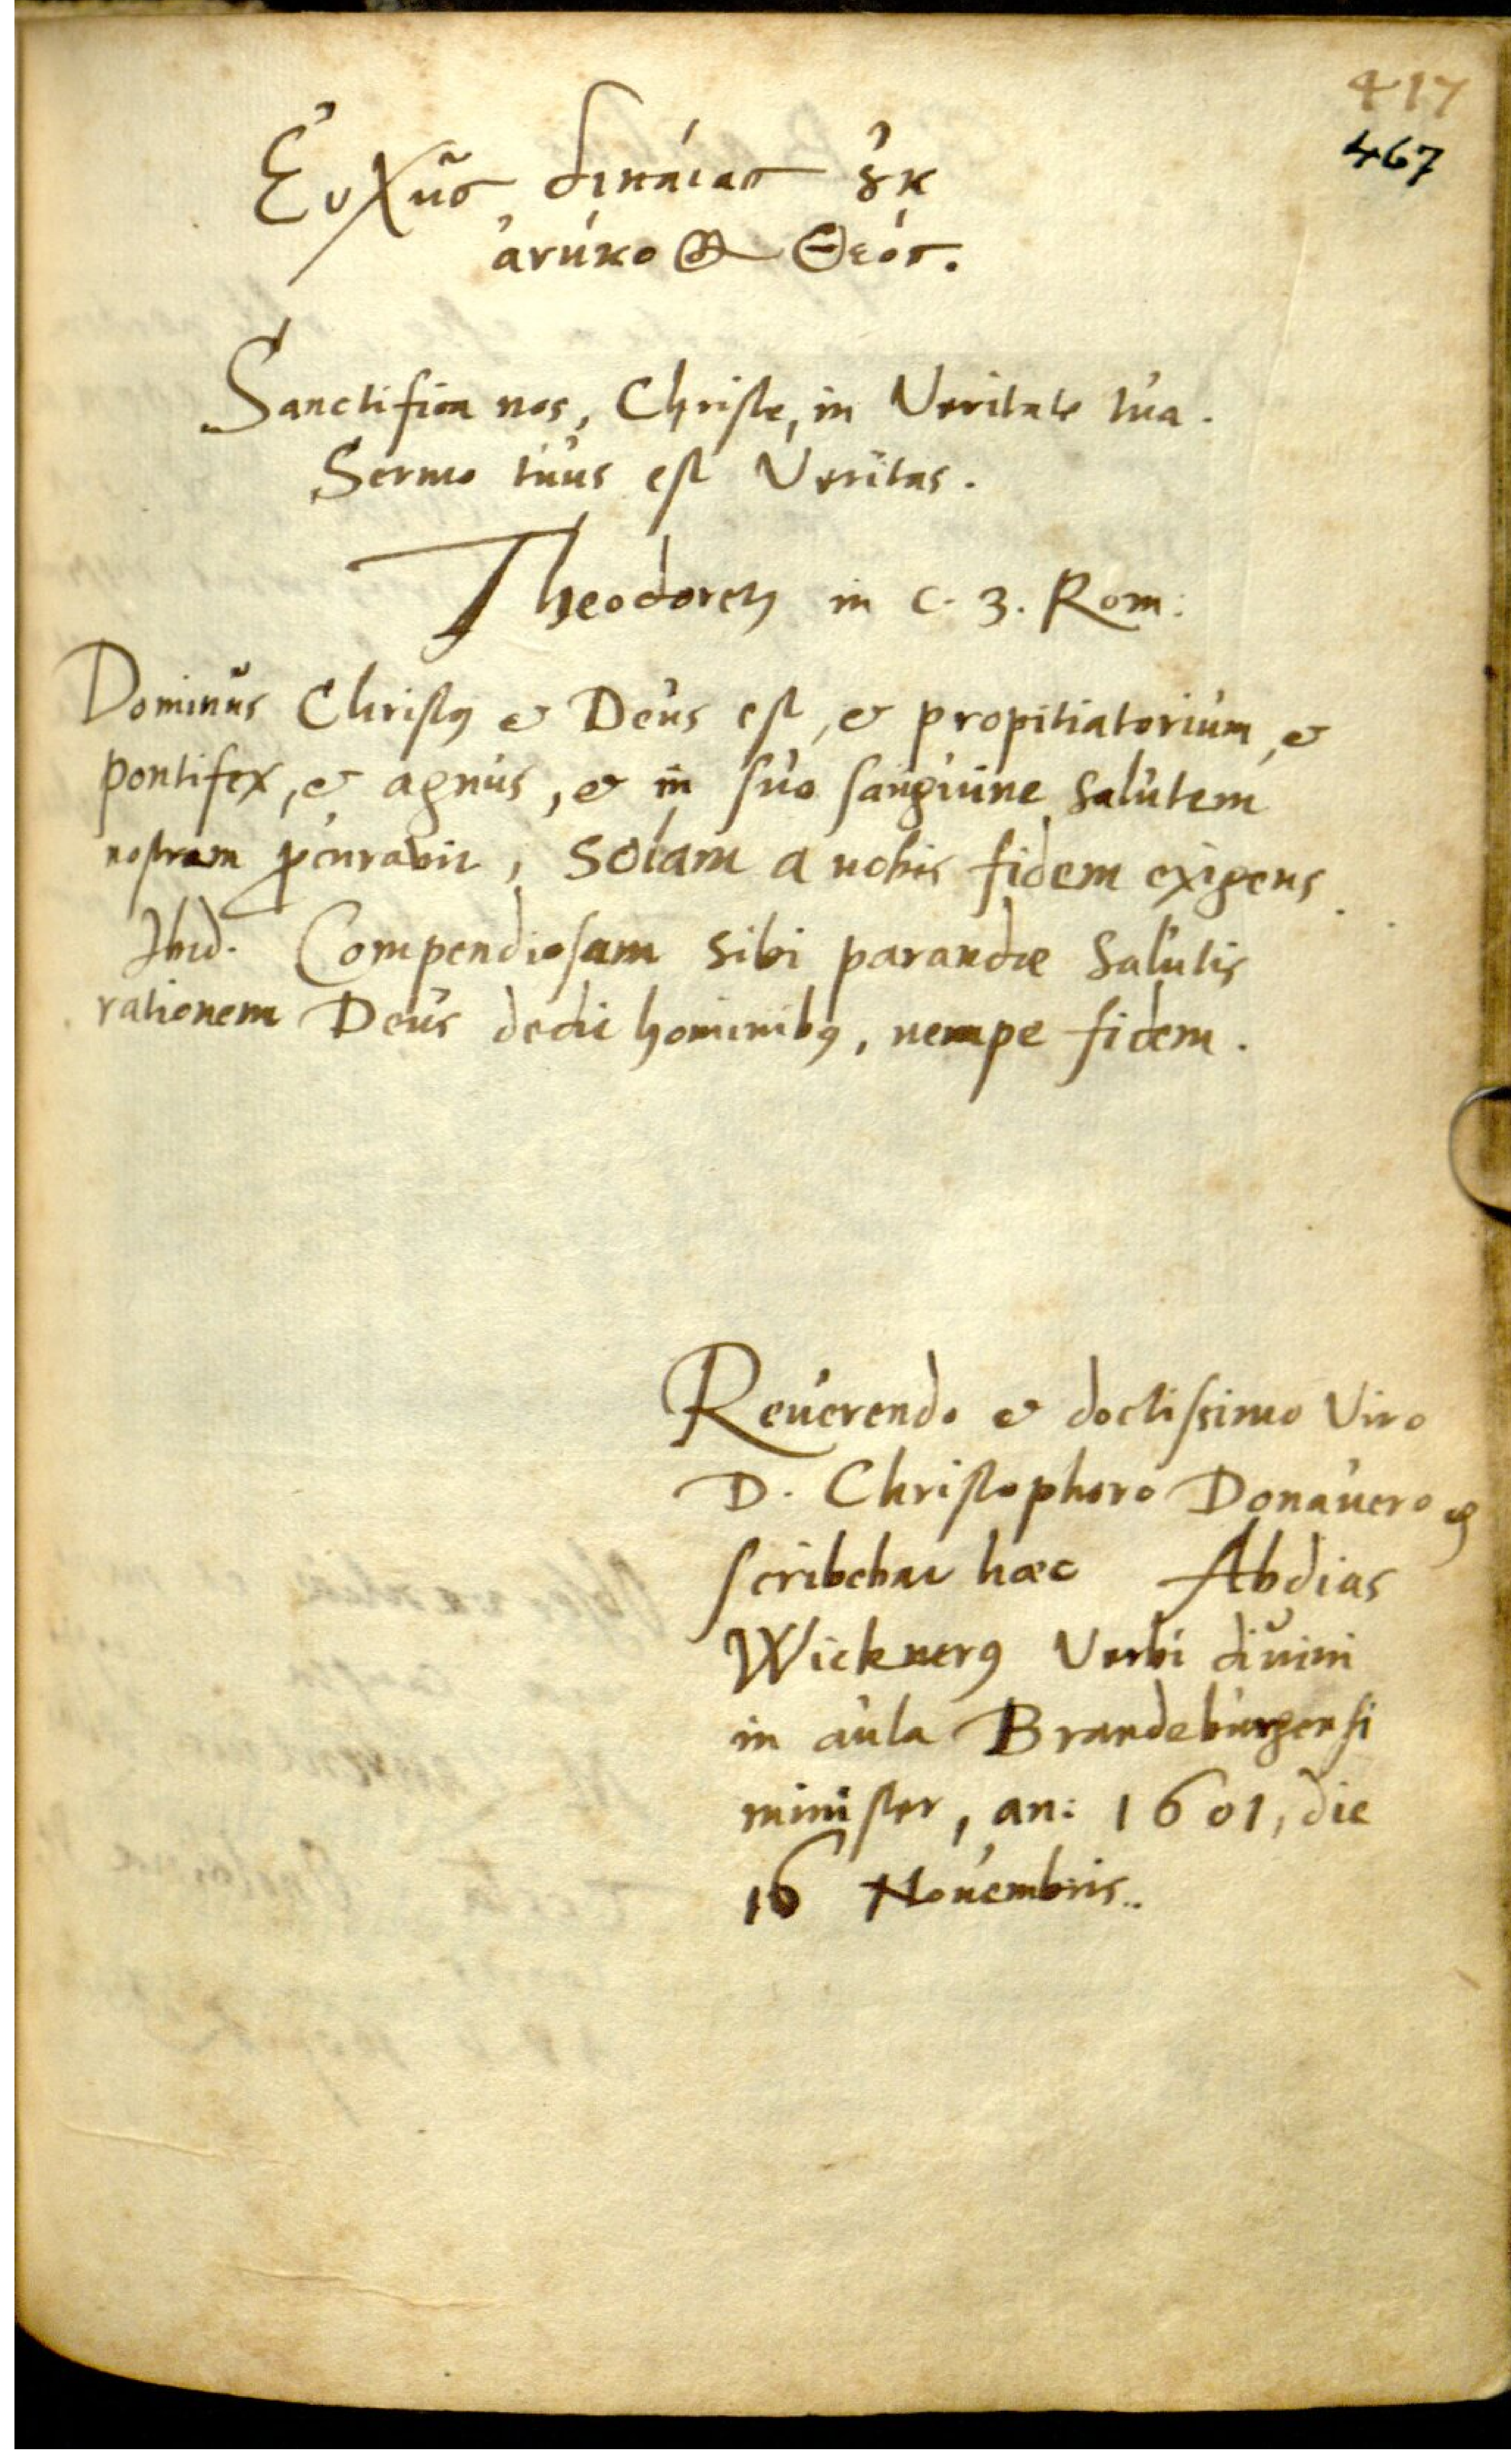 417
467
Εὐχῆς δικαίας ȣ̓κ
ἀνήκοος Θεός.
Sanctifica nos, Christe, in Veritate tua.
Sermo tuus est Veritas.
Theodoretꝰ in c. 3. Rom:
Dominus Christꝰ & Deus est, & propitiatorium, &
pontifex, & agnus, & in suo sanguine salutem
nostram ꝓcuravit, solam a nobis fidem exigens.
Ibid. Compendiosam sibi parandæ salutis
rationem Deus dedit hominibꝰ, nempe fidem.
Reuerendo & doctissimo Viro
D. Christophoro Donauero
scribebat hæc Abdias
Wicknerꝰ Verbi diuini
in aula Brandeburgensi
minister, an: 1601, die
16 Nouembris.